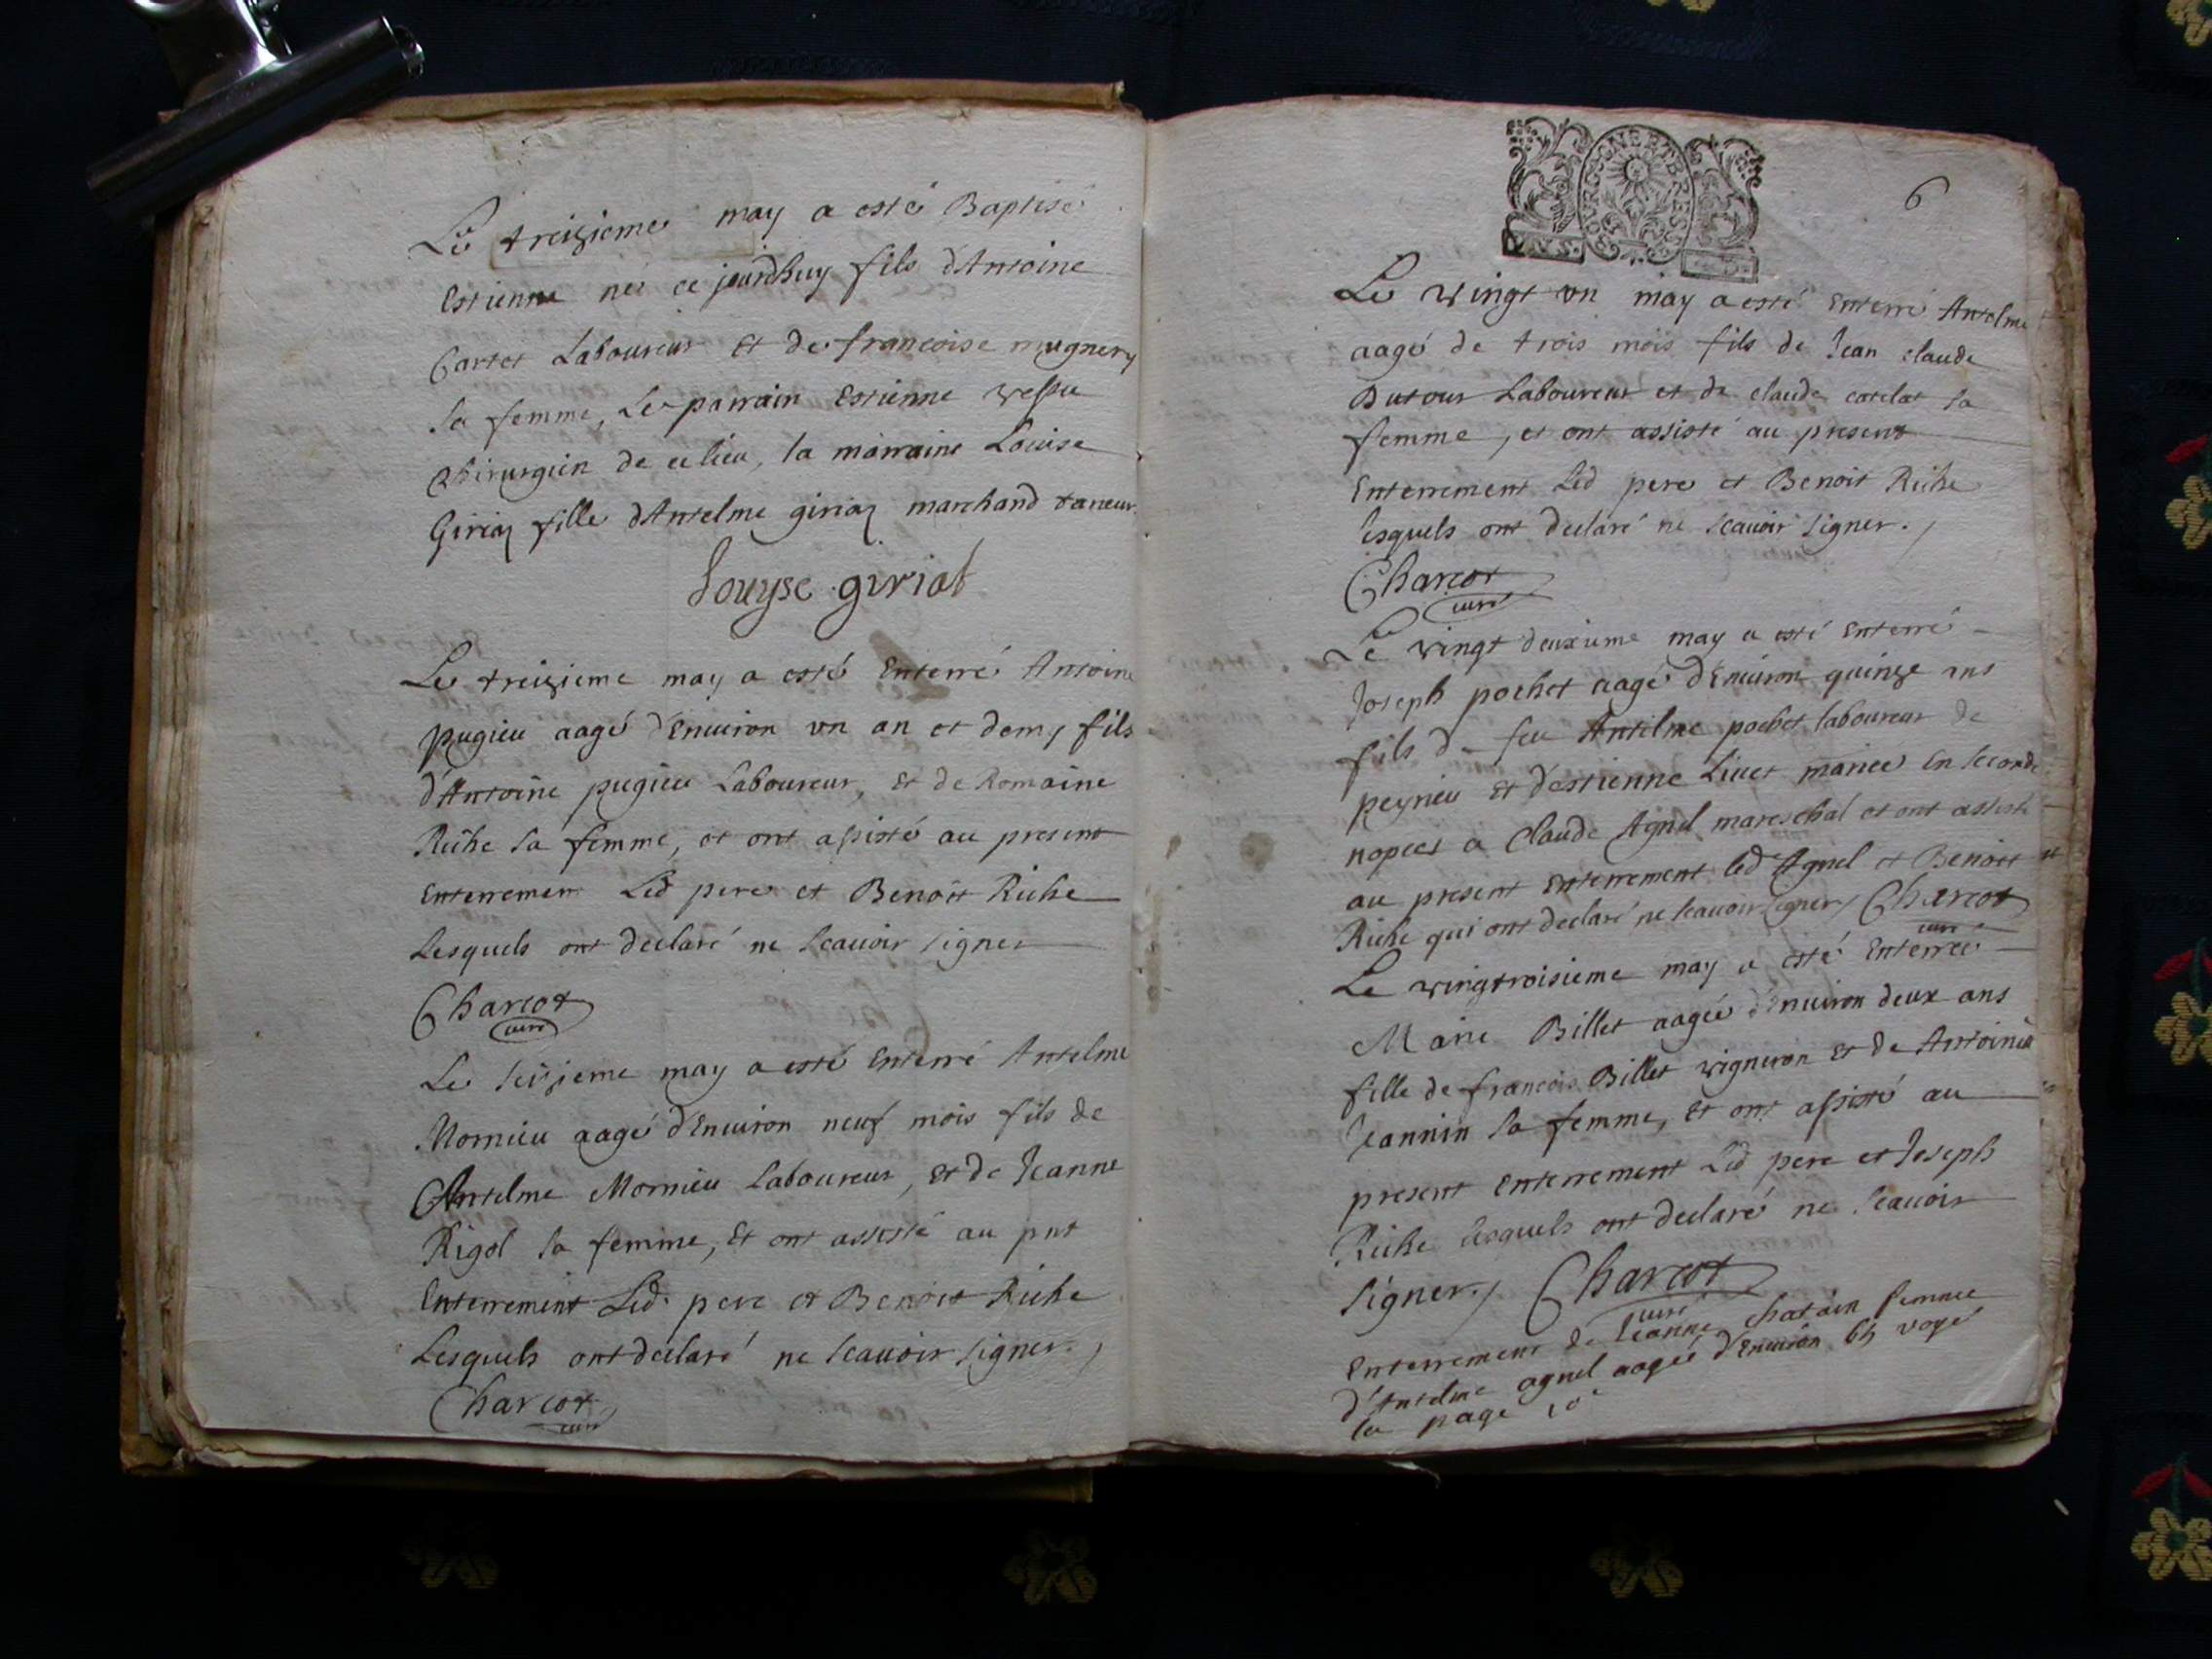 Le treizieme may a esté Baptisé
Estienne né ce jourdhuy fils d'Antoine
Cartet Laboureur Et de francoise mugnery
sa femme, Le parrain Estienne
Chirurgien de ce lieu, la marraine Louise
fille dAntelme marchand taneur.
Louyse giriat
Le treizieme may a esté Enterré Antoine
pugieu aagé d'Enuiron vn an et demy fils
d'Antoine pugieu Laboureur, et de Romaine
Riche sa femme, et ont assisté au present
Enterremen Led pere et Benoit Riche
Lesquels ont declaré ne scauoir signer
Charcot
curé
Le seizieme may a esté Enterré Antelme
Mornieu aagé d'Enuiron neuf mois fils de
Antelme Mornieu Laboureur, et de Jeanne
Rigol sa femme, Et ont assisté au pnt
Enterrement Led. pere et Benoit Riche
Lesquels ont declaré ne scauoir signer.
Charcot
curé
BOURGOGNE ET BRESSE
6
Le vingt vn may a esté Enterré Antelme
aagé de trois mois fils de Jean claude
Dutour Laboureur et de claude catelat sa
femme, et ont assisté au present
Enterrement Led pere et Benoit Riche
lesquels ont declaré ne scauoir signer.
Charcot
curé
Le vingt deuxieme may a esté Enterré
Joseph pochet aagé d'Enuiron quinze ans
fils de feu Antelme pochet laboureur de
peyrieu et d'estienne Liuet mariée En seconde
nopces a Claude Agnel mareschal et ont assisté
au present Enterrement led Agnel et Benoit
Riche qui ont declaré ne scauoir signer, Charcot
curé
Le vingtroisieme may a esté Enterrée
Marie Billet aagée d'Enuiron deux ans
fille de francois Billet vigneron et de Antoinea
Jeannin sa femme, Et ont assisté au
present Enterrement Led pere et Joseph
Riche lesquels ont declaré ne scauoir
signer, Charcot
curé
Enterrement de Jeanne chatain femme
d'Antelme agnel aagée d'Enuiron voyé
la page 10